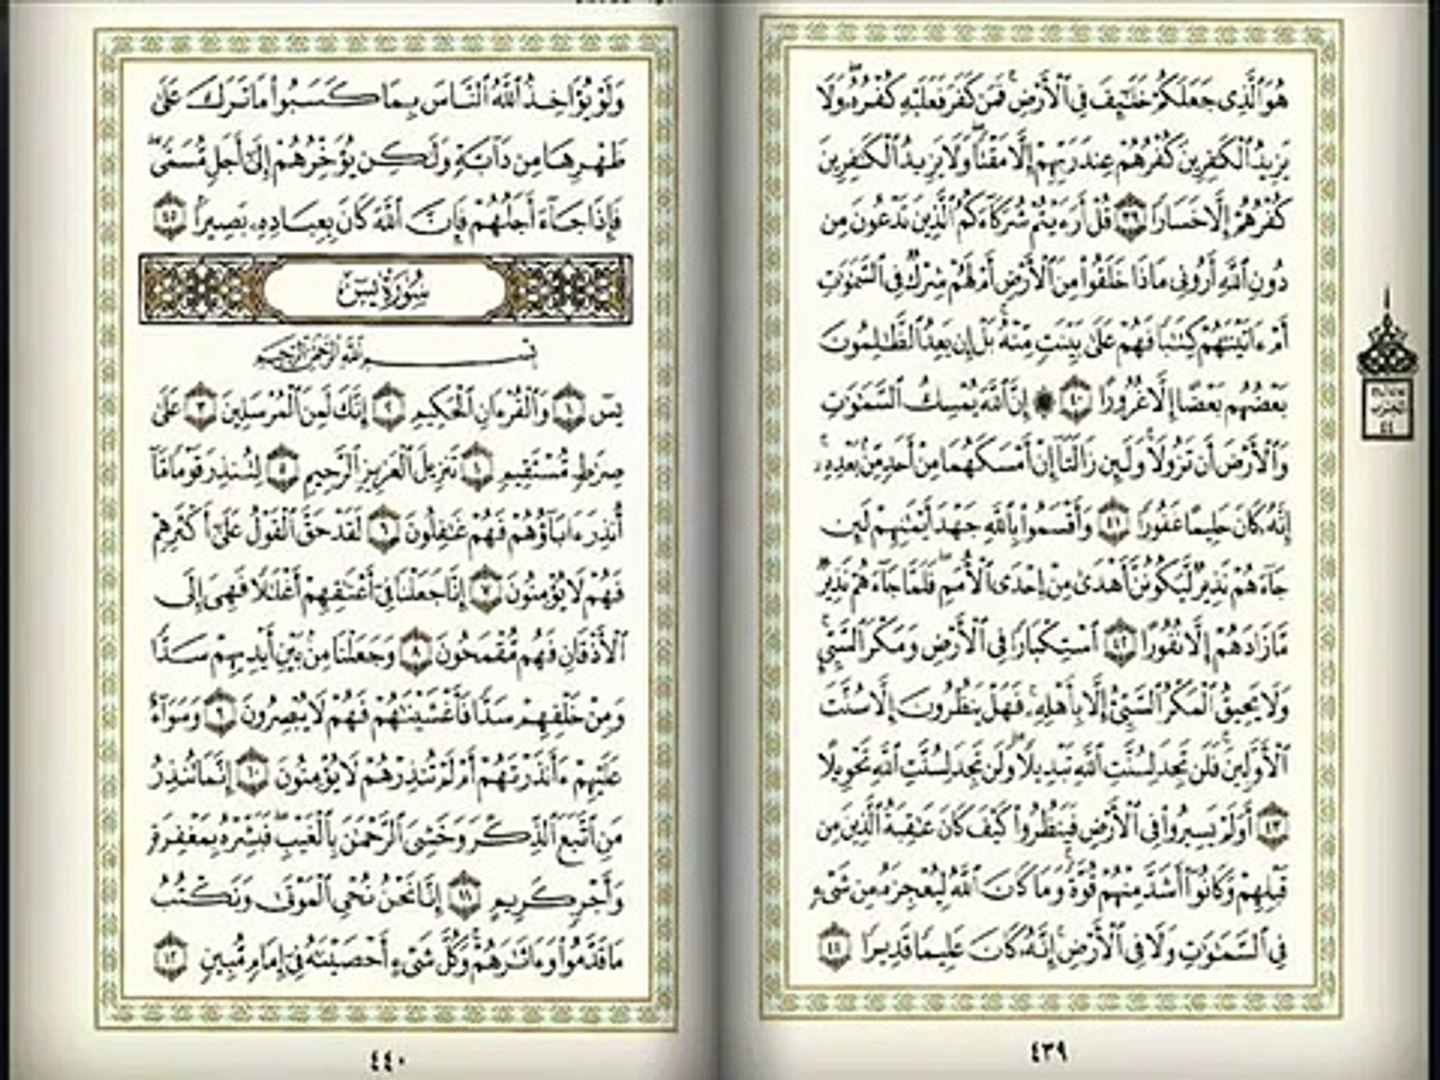 هُوَ الَّذِى جَعَلَكُمْ خَلَـٰٓئِفَ فِى الْأَرْضِ ۚ فَمَن كَفَرَ فَعَلَيْهِ كُفْرُهُۥ ۖ وَلَا
يَزِيدُ الْكَـٰفِرِينَ كُفْرُهُمْ عِندَ رَبِّهِمْ إِلَّا مَقْتًا ۖ وَلَا يَزِيدُ الْكَـٰفِرِينَ
كُفْرُهُمْ إِلَّا خَسَارًا ٣٩ قُلْ أَرَءَيْتُمْ شُرَكَآءَكُمُ الَّذِينَ تَدْعُونَ مِن
دُونِ اللَّهِ أَرُونِى مَاذَا خَلَقُوا۟ مِنَ الْأَرْضِ أَمْ لَهُمْ شِرْكٌ فِى السَّمَـٰوَٰتِ
أَمْ ءَاتَيْنَـٰهُمْ كِتَـٰبًا فَهُمْ عَلَىٰ بَيِّنَتٍ مِّنْهُ ۚ بَلْ إِن يَعِدُ الظَّـٰلِمُونَ
بَعْضُهُم بَعْضًا إِلَّا غُرُورًا ٤٠ ۞ إِنَّ اللَّهَ يُمْسِكُ السَّمَـٰوَٰتِ
وَالْأَرْضَ أَن تَزُولَا ۚ وَلَئِن زَالَتَآ إِنْ أَمْسَكَهُمَا مِنْ أَحَدٍ مِّنۢ بَعْدِهِۦٓ ۚ
إِنَّهُۥ كَانَ حَلِيمًا غَفُورًا ٤١ وَأَقْسَمُوا۟ بِاللَّهِ جَهْدَ أَيْمَـٰنِهِمْ لَئِن
جَآءَهُمْ نَذِيرٌ لَّيَكُونُنَّ أَهْدَىٰ مِنْ إِحْدَى الْأُمَمِ ۖ فَلَمَّا جَآءَهُمْ نَذِيرٌ
مَّا زَادَهُمْ إِلَّا نُفُورًا ٤٢ اسْتِكْبَارًا فِى الْأَرْضِ وَمَكْرَ السَّيِّئِ ۚ
وَلَا يَحِيقُ الْمَكْرُ السَّيِّئُ إِلَّا بِأَهْلِهِۦ ۚ فَهَلْ يَنظُرُونَ إِلَّا سُنَّتَ
الْأَوَّلِينَ ۚ فَلَن تَجِدَ لِسُنَّتِ اللَّهِ تَبْدِيلًا ۖ وَلَن تَجِدَ لِسُنَّتِ اللَّهِ تَحْوِيلًا
٤٣ أَوَلَمْ يَسِيرُوا۟ فِى الْأَرْضِ فَيَنظُرُوا۟ كَيْفَ كَانَ عَـٰقِبَةُ الَّذِينَ مِن
قَبْلِهِمْ وَكَانُوٓا۟ أَشَدَّ مِنْهُمْ قُوَّةً ۚ وَمَا كَانَ اللَّهُ لِيُعْجِزَهُۥ مِن شَىْءٍ
فِى السَّمَـٰوَٰتِ وَلَا فِى الْأَرْضِ ۚ إِنَّهُۥ كَانَ عَلِيمًا قَدِيرًا ٤٤
٤٣٩
الحزب
٤٤
وَلَوْ يُؤَاخِذُ اللَّهُ النَّاسَ بِمَا كَسَبُوا۟ مَا تَرَكَ عَلَىٰ
ظَهْرِهَا مِن دَآبَّةٍ وَلَـٰكِن يُؤَخِّرُهُمْ إِلَىٰٓ أَجَلٍ مُّسَمًّى ۖ
فَإِذَا جَآءَ أَجَلُهُمْ فَإِنَّ اللَّهَ كَانَ بِعِبَادِهِۦ بَصِيرًۢا ٤٥
سُورَةُ يس
بِسْمِ اللَّهِ الرَّحْمَـٰنِ الرَّحِيمِ
يسٓ ١ وَالْقُرْءَانِ الْحَكِيمِ ٢ إِنَّكَ لَمِنَ الْمُرْسَلِينَ ٣ عَلَىٰ
صِرَٰطٍ مُّسْتَقِيمٍ ٤ تَنزِيلَ الْعَزِيزِ الرَّحِيمِ ٥ لِتُنذِرَ قَوْمًا مَّآ
أُنذِرَ ءَابَآؤُهُمْ فَهُمْ غَـٰفِلُونَ ٦ لَقَدْ حَقَّ الْقَوْلُ عَلَىٰٓ أَكْثَرِهِمْ
فَهُمْ لَا يُؤْمِنُونَ ٧ إِنَّا جَعَلْنَا فِىٓ أَعْنَـٰقِهِمْ أَغْلَـٰلًا فَهِىَ إِلَى
الْأَذْقَانِ فَهُم مُّقْمَحُونَ ٨ وَجَعَلْنَا مِنۢ بَيْنِ أَيْدِيهِمْ سَدًّا
وَمِنْ خَلْفِهِمْ سَدًّا فَأَغْشَيْنَـٰهُمْ فَهُمْ لَا يُبْصِرُونَ ٩ وَسَوَآءٌ
عَلَيْهِمْ ءَأَنذَرْتَهُمْ أَمْ لَمْ تُنذِرْهُمْ لَا يُؤْمِنُونَ ١٠ إِنَّمَا تُنذِرُ
مَنِ اتَّبَعَ الذِّكْرَ وَخَشِىَ الرَّحْمَـٰنَ بِالْغَيْبِ ۖ فَبَشِّرْهُ بِمَغْفِرَةٍ
وَأَجْرٍ كَرِيمٍ ١١ إِنَّا نَحْنُ نُحْىِ الْمَوْتَىٰ وَنَكْتُبُ
مَا قَدَّمُوا۟ وَءَاثَـٰرَهُمْ ۚ وَكُلَّ شَىْءٍ أَحْصَيْنَـٰهُ فِىٓ إِمَامٍ مُّبِينٍ ١٢
٤٤٠